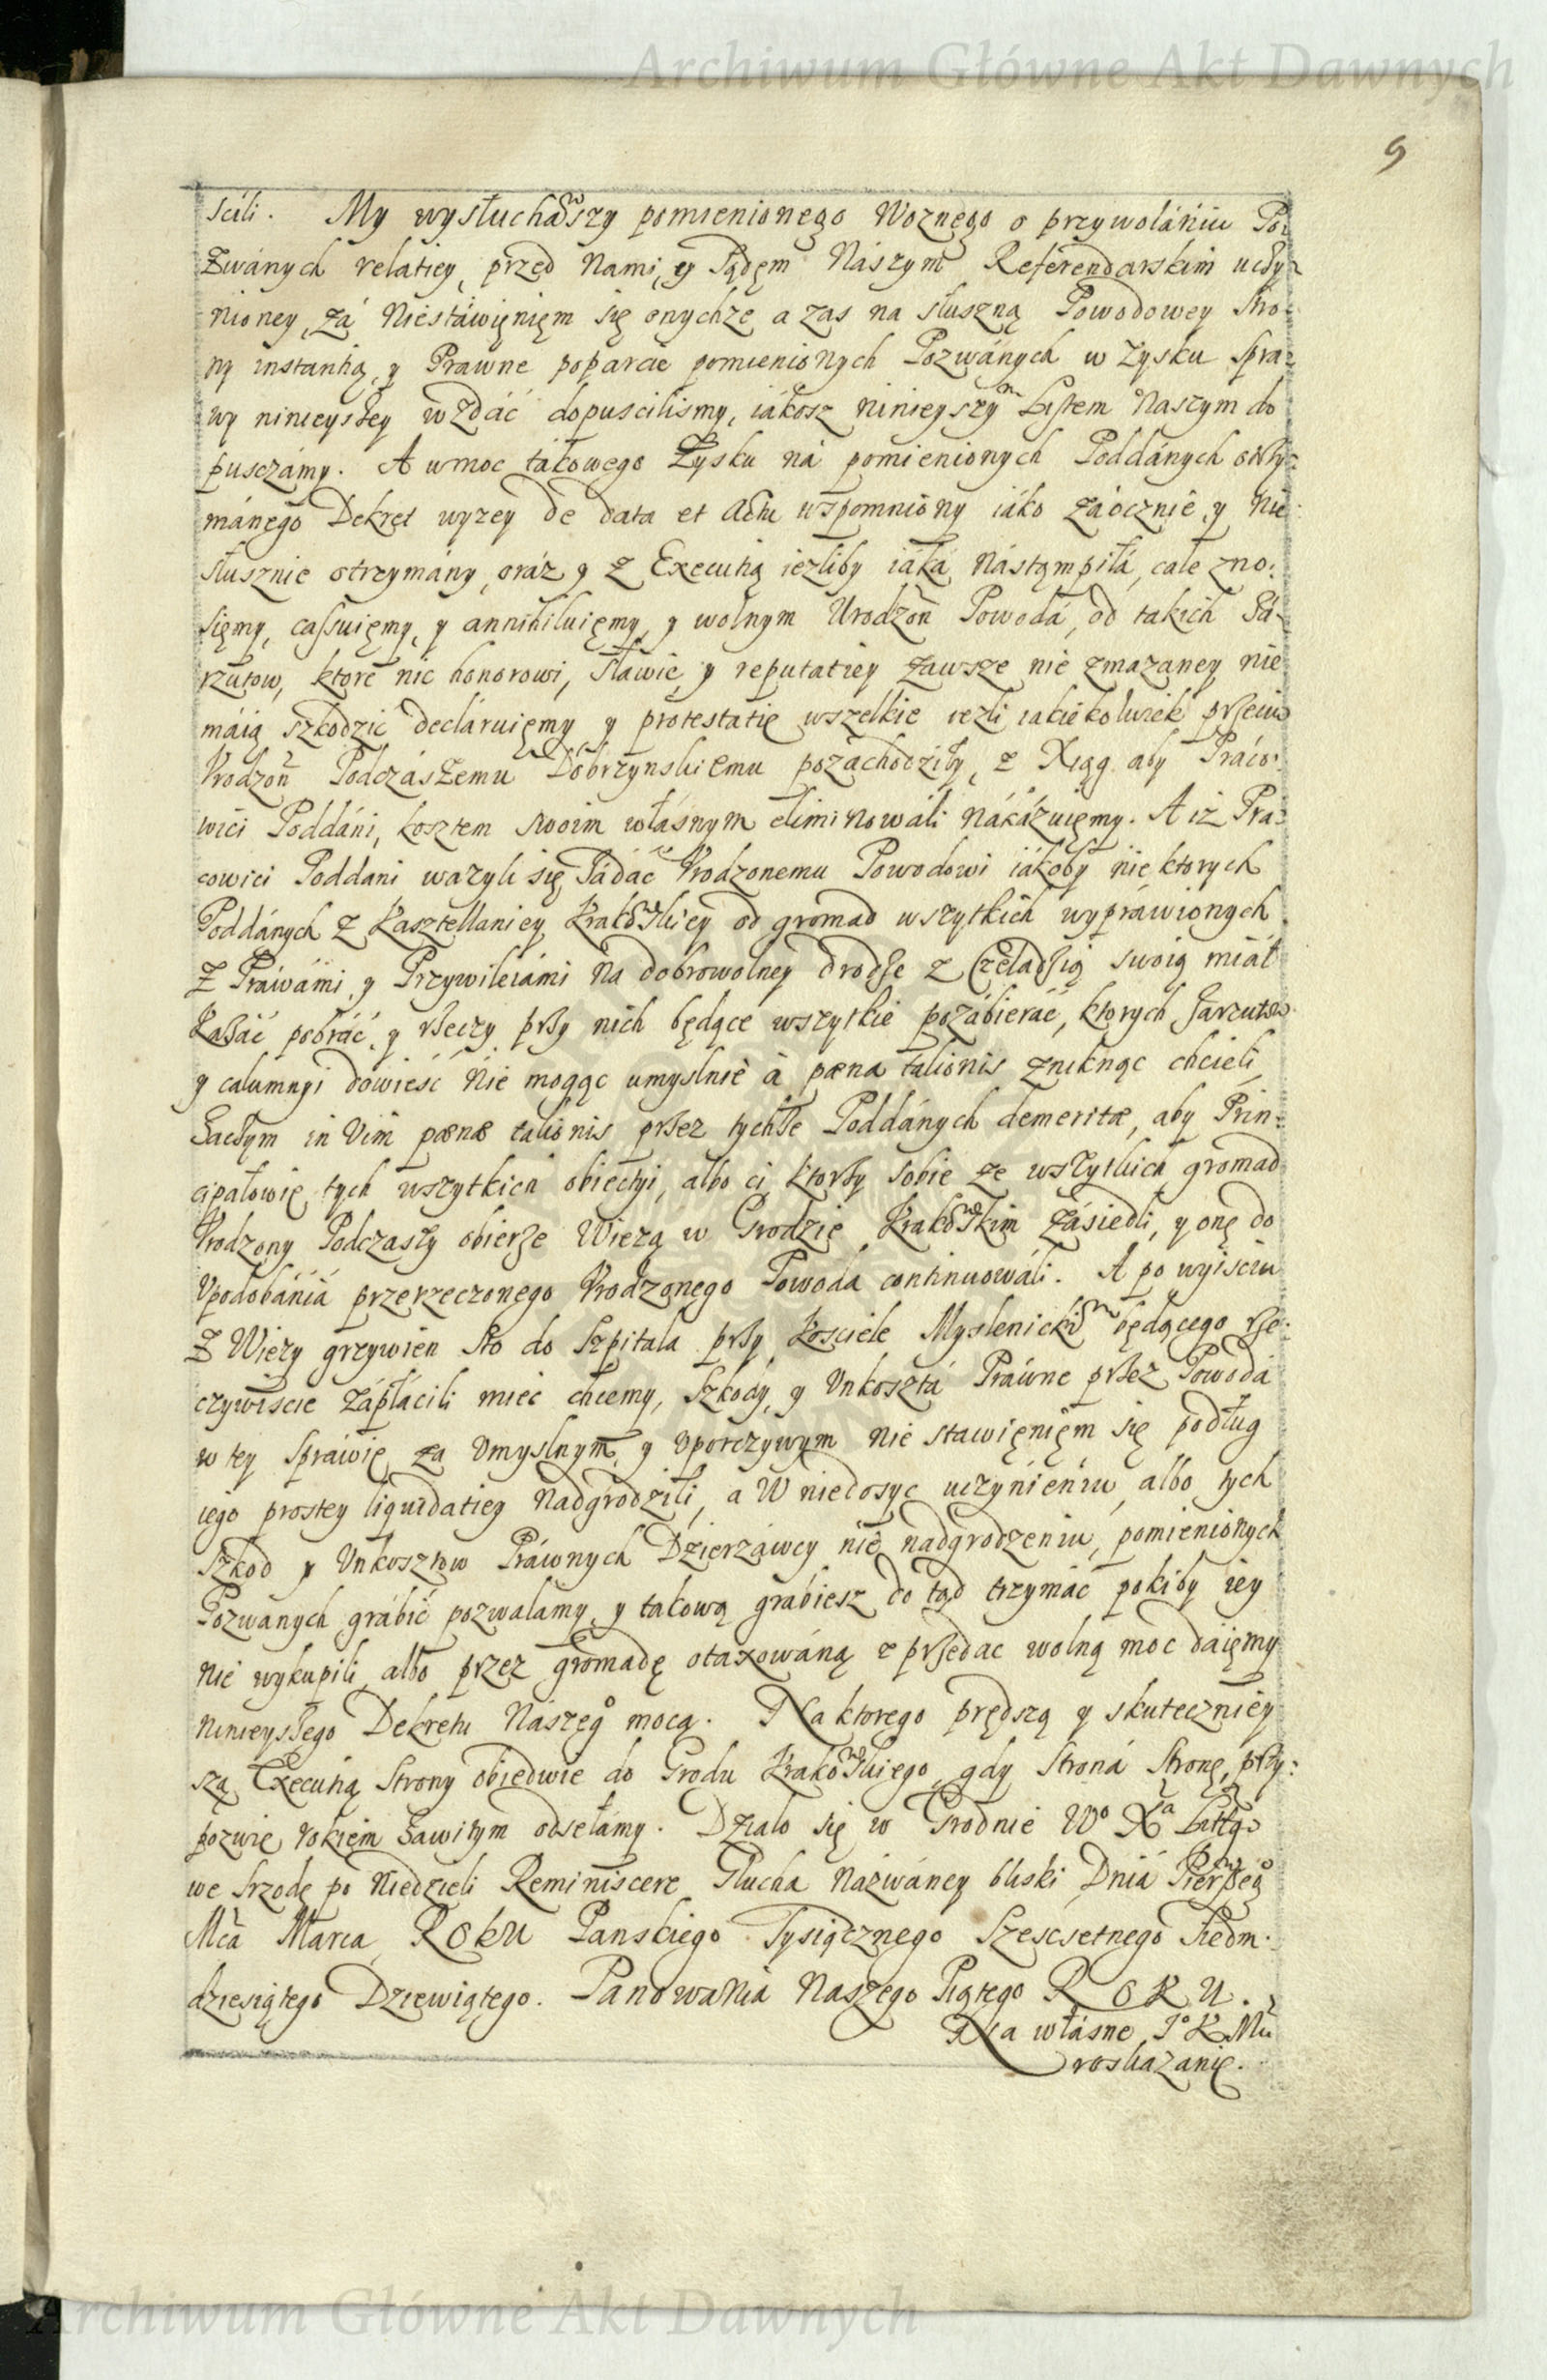 Archiwum Główne Akt Dawnych
9
scili. My wysłuchawszy pomienionego Woznego o przywołániu Po-
zwánych relatiey, przed Nami, y Sądęm Nászym Referendarskim uczy-
nioney, zá Niestáwięnięm się onychze, a zas na słuszną Powodowey stro-
ny instantią, y Prawne poparcie pomienionych Pozwánych w zysku spra-
wy ninieyszey wzdać dopuscilismy, iákosz ninieyszym Listem Naszym do
pusczámy. A wmoc tákowego Zysku ná pomienionych Poddánych otrzy-
mánego Dekret wyzey de data et actu wspomniony iáko záocznie, y Nie
słusznie otrzymány, oráz y z Executią iezliby iáka nástąmpiłá, cale zno-
sięmy, cassuięmy, y annihiluięmy, y wolnym Urodzoñ Powodá, od takich Zá-
rzutow, ktore nic honorowi, sławie, y reputatiey zawsze nie zmazaney nie
máią szkodzić decláruięmy y protestatie wszelkie iezli iakiekolwiek przeciw
Vrodzoñ Podczászemu Dobrzynskiemu pozáchodziły, z Xiąg aby Práco-
wici Poddáni, kosztem swoim włásnym eliminowáli nákázuięmy. A iż Pra-
cowici Poddani wazyli się zádáć Vrodzonemu Powodowi iákoby niektorych
Poddánych z Kasztellaniey Krakowskiey od gromad wszytkich wypráwionych
z Práwámi, y Przywileiámi na dobrowolney drodze z Czeladzią swoią miáł
kazáć pobráć, y rzeczy przy nich będące wszytkie pozábieráć, ktorych zarzutow
y calumnyi dowieść nie mogąc umyslnie à pæna talionis zniknąc chcieli,
Zaczym in vim pænæ talionis przez tychze Poddánych demeritæ, aby Prin-
cipałowie tych wszytkich obiectyi, albo ci ktorzy sobie ze wszytkich gromad
Vrodzony Podczaszy obierze Wiezą w Grodzie Krakowskim zásiedli, y onę do
Vpodobánia przerzeczonego Vrodzonego Powoda continuowáli. A po wyisciu
z Wiezy grzywien sto do Szpitala przy Kosciele Myslenickim będącego rze-
czywiscie zápłácili miec chcemy, szkody, y Vnkosztá Práwne przez Powodá
w tey spráwie za Vmyslnym, y Vporczywym nie stawięnięm się podług
iego prostey liquidatiey nadgrodzili, a W niedosyc uczynieniu, albo tych
szkod y Vnkosztow Práwnych Dzierzáwcy nie nadgrodzeniu, pomienionych
Pozwanych grábić pozwalamy, y takową grabiesz do tąd trzymác pokiby iey
nie wykupili albo przez gromadę otaxowáną przedac wolną moc dáięmy
ninieyszego Dekretu Nászego mocą. Na ktorego prędszą y skuteczniey
szą Executią Strony obiedwie do Grodu Krakowskiego, gdy stroná stronę, przy-
pozwie rokiem zawitym odsełámy. Działo się w Grodnie W° Xa Litt°
we srzodę po Niedzieli Reminiscere Glucha názwáney bliski Dniá Pierwszego
Mcà Marca Roku Panskiego Tysiącznego Szescsetnego Siedm-
dziesiątego Dziewiątego. Panowania Naszego Piątego ROKU.
Na włásne J° K Mci
roskazanie.
Archiwum Główne Akt Dawnych